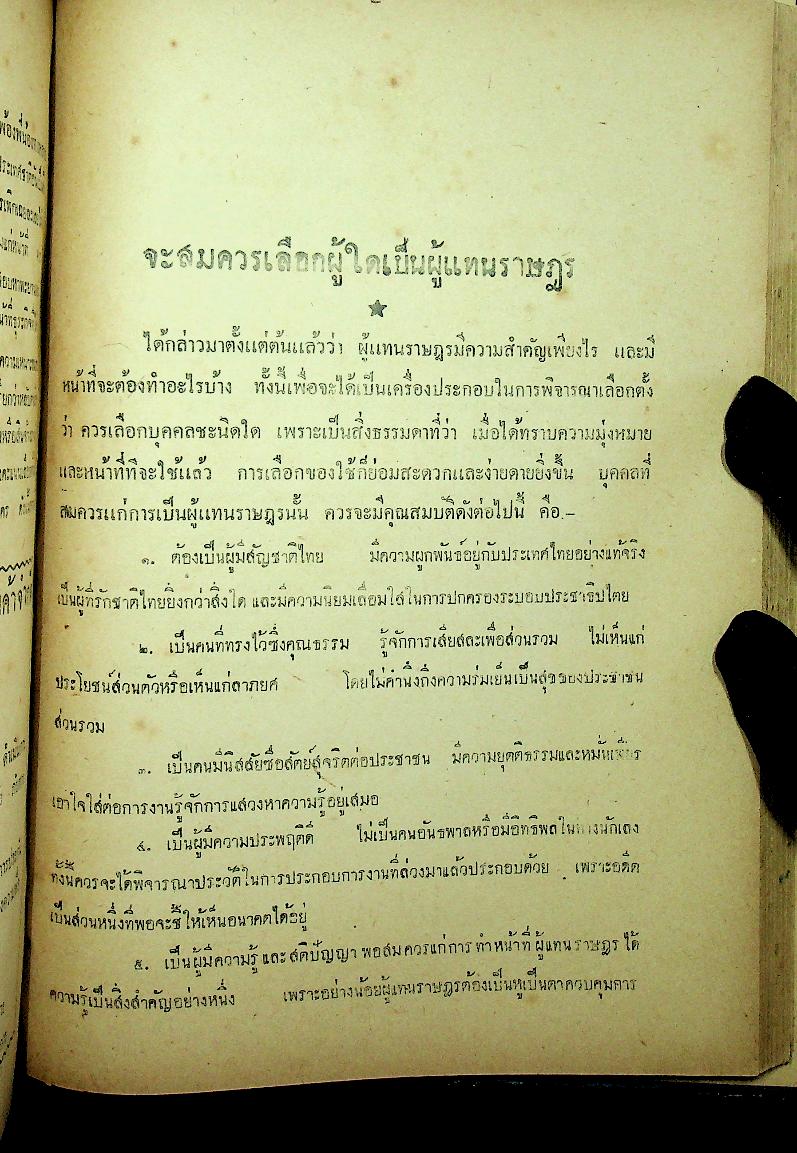 จะสมควรเลือกผู้ใดเป็นผู้แทนราษฎร
★
ได้กล่าวมาตั้งแต่ต้นแล้วว่า ผู้แทนราษฎรมีความสำคัญเพียงไร และมี
หน้าที่จะต้องทำอะไรบ้าง ทั้งนี้เพื่อจะได้เป็นเครื่องประกอบในการพิจารณาเลือกตั้ง
ว่า ควรเลือกบุคคลชะนิดใด เพราะเป็นสิ่งธรรมดาที่ว่า เมื่อได้ทราบความมุ่งหมาย
และหน้าที่ที่จะใช้แล้ว การเลือกของใช้ก็ย่อมสะดวกและง่ายดายยิ่งขึ้น บุคคลที่
สมควรแก่การเป็นผู้แทนราษฎรนั้น ควรจะมีคุณสมบัติดังต่อไปนี้ คือ.–
๑. ต้องเป็นผู้มีสัญชาติไทย มีความผูกพันธ์อยู่กับประเทศไทยอย่างแท้จริง
เป็นผู้ที่รักชาติไทยยิ่งกว่าสิ่งใด และมีความนิยมเลื่อมใสในการปกครองระบอบประชาธิปไตย
๒. เป็นคนที่ทรงไว้ซึ่งคุณธรรม รู้จักการเสียสละเพื่อส่วนรวม ไม่เห็นแก่
ประโยชน์ส่วนตัวหรือเห็นแก่ลาภยศ โดยไม่คำนึงถึงความร่มเย็นเป็นสุขของประชาชน
ส่วนรวม
๓. เป็นคนมีนิสสัยซื่อสัตย์สุจริตต่อประชาชน มีความยุตติธรรมและหมั่นเพียร
เอาใจใส่ต่อการงานรู้จักการแสวงหาความรู้อยู่เสมอ
๔. เป็นผู้มีความประพฤติดี ไม่เป็นคนอันธพาลหรือมีอิทธิพลในทางนักเลง
ทั้งนี้ควรจะได้พิจารณาประวัติในการประกอบการงานที่ล่วงมาแล้วประกอบด้วย เพราะอดีต
เป็นส่วนหนึ่งที่พอจะชี้ให้เห็นอนาคตได้อยู่
๕. เป็นผู้มีความรู้ และสติปัญญา พอสมควรแก่การ ทำหน้าที่ ผู้แทน ราษฎร ได้
ความรู้เป็นสิ่งสำคัญอย่างหนึ่ง เพราะอย่างน้อยผู้แทนราษฎรต้องเป็นหูเป็นตาควบคุมการ